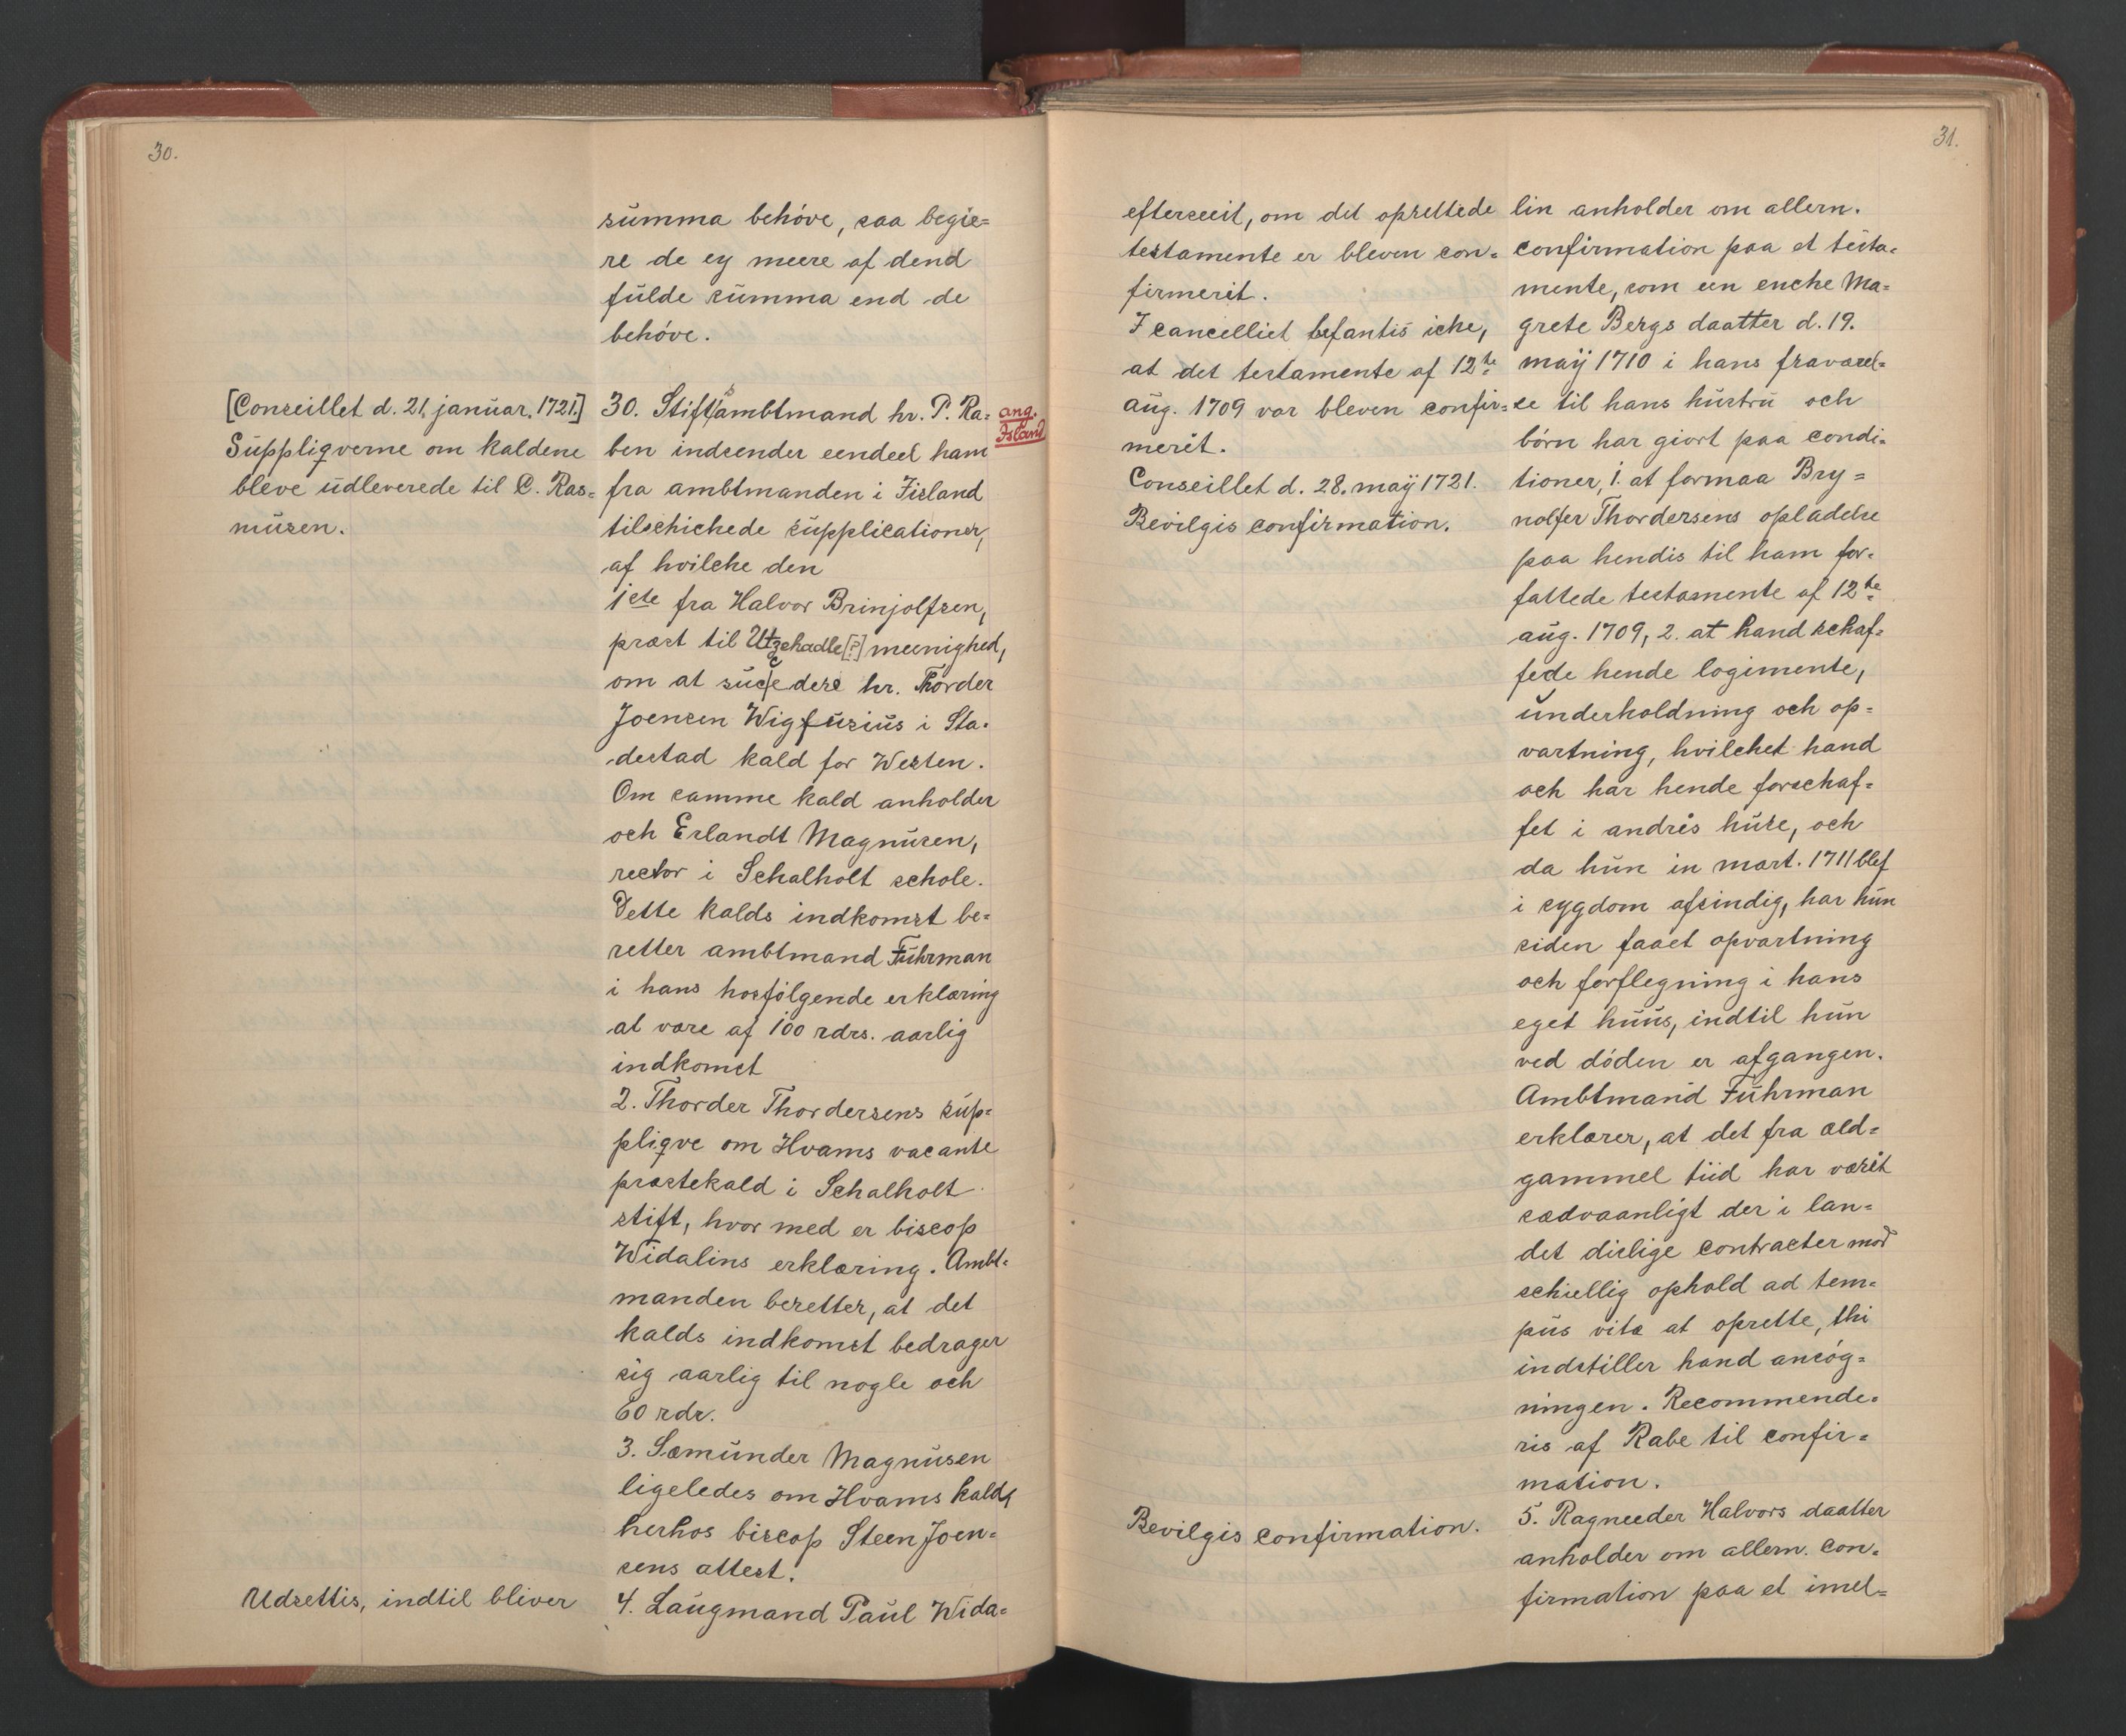 30.
summa behóve, saa begie=
re de ey meere af dend
fulde summa end de
behóve.
[Conseillet d. 21. januar. 1721.]
Suppliqverne om kaldene
bleve udleverede til C. Ras=
musen.
30. Stiftsambtmand hr. P. Ra=
ben indsender eendeel ham
fra ambtmanden i Jisland
tilschichede supplicationer,
af hvilche den
1ste fra Halvor Brinjolfsen,
præst til Utzchadle [?] meenighed,
om at succedere hr. Thorder
Joensen Wigfusius i Sta=
destad kald for Westen.
Om samme kald anholder
och Erlandt Magnusen,
rector i Schalholt schole.
Dette kalds indkomst be=
retter ambtmand Fuhrman
i hans hosfólgende erklæring
at være af 100 rdrs. aarlig
indkomst
2. Thorder Thordersens sup=
pliqve om Hvams vacante
præstekald i Schalholt
stift, hvor med er biscop
Widalins erklæring. Ambt=
manden beretter, at det
kalds indkomst bedrager
sig aarlig til nogle och
60 rdr.
3. Sæmunder Magnusen
ligeledes om Hvams kald,
herhos biscop Steen Joen=
sens attest.
4. Laugmand Paul Wida=
ang.
Island
Udsettis, indtil bliver
31.
efterseeit, om det oprettede
testamente er bleven con=
firmerit.
I cancelliet befantis iche,
at det testamente af 12te
aug. 1709 var bleven confir=
merit.
Conseillet d. 28. maÿ 1721.
Bevilgis confirmation.
lin anholder om allern.
confirmation paa et testa=
mente, som een enche Ma=
grete Bergs daatter d. 19.
maÿ 1710 i hans fraværel=
se til hans hustru och
bórn har giort paa condi=
tioner, 1. at formaa Bry=
nolfer Thordersens opladelse
paa hendis til ham for=
fattede testamente af 12te
aug. 1709, 2. at hand schaf=
fede hende logimente,
underholdning och op=
vartning, hvilchet hand
och har hende forschaf=
fet i andris huse, och
da hun in mart. 1711 blef
i sygdom afsindig, har hun
siden faaet opvartning
och forflegning i hans
eget huus, indtil hun
ved dóden er afgangen.
Ambtmand Fuhrman
erklærer, at det fra æld=
gammel tiid har værit
sædvaanligt der i lan=
det dislige contracter mod
schiellig ophold ad tem=
pus vitæ at oprette, thi
indstiller hand ansóg=
ningen. Recommende=
ris af Rabe til confir=
mation.
5. Ragneeder Halvors daatter
anholder om allern. con=
firmation paa et imel=
Bevilgis confirmation.